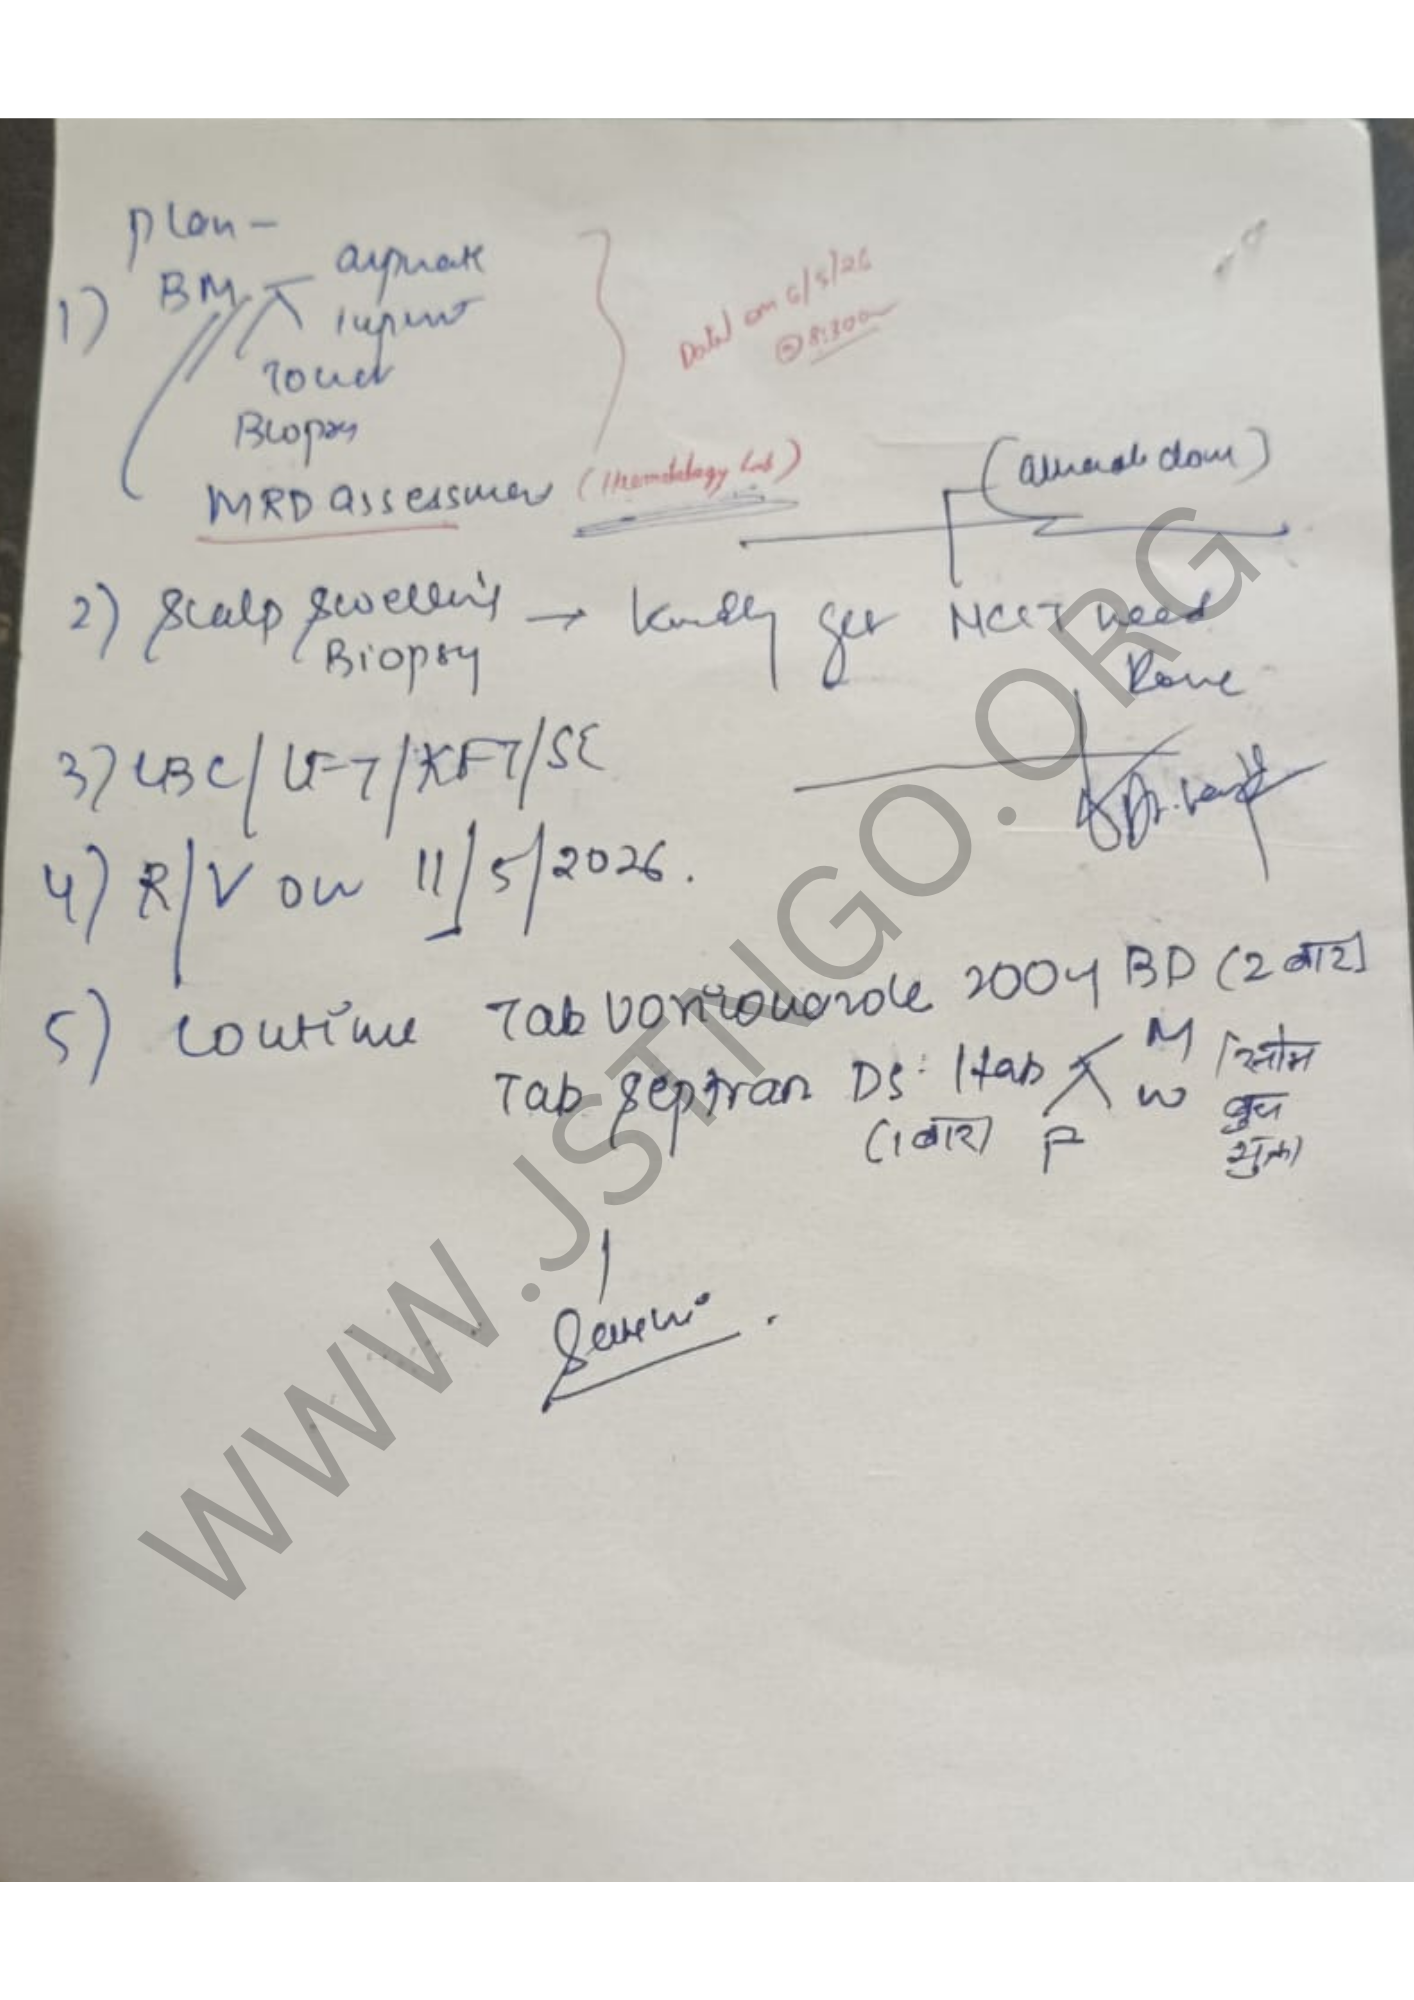 Plan -
1) BM aspirate
imprint
Touch
Biopsy
MRD assessment (Hematology Lab)
Dated on 6/5/26
@ 8:30am
(already done)
2) Scalp swelling → Kindly get NCCT head
Biopsy
Done
3) CBC/LFT/KFT/SE
4) R/V on 11/5/2026.
5) Continue Tab Voriconazole 200mg BD (2 बार)
Tab Septran DS: 1 tab M (सोम
W बुध
(1 बार) F शुक्र)
WWW.JSTNGO.ORG